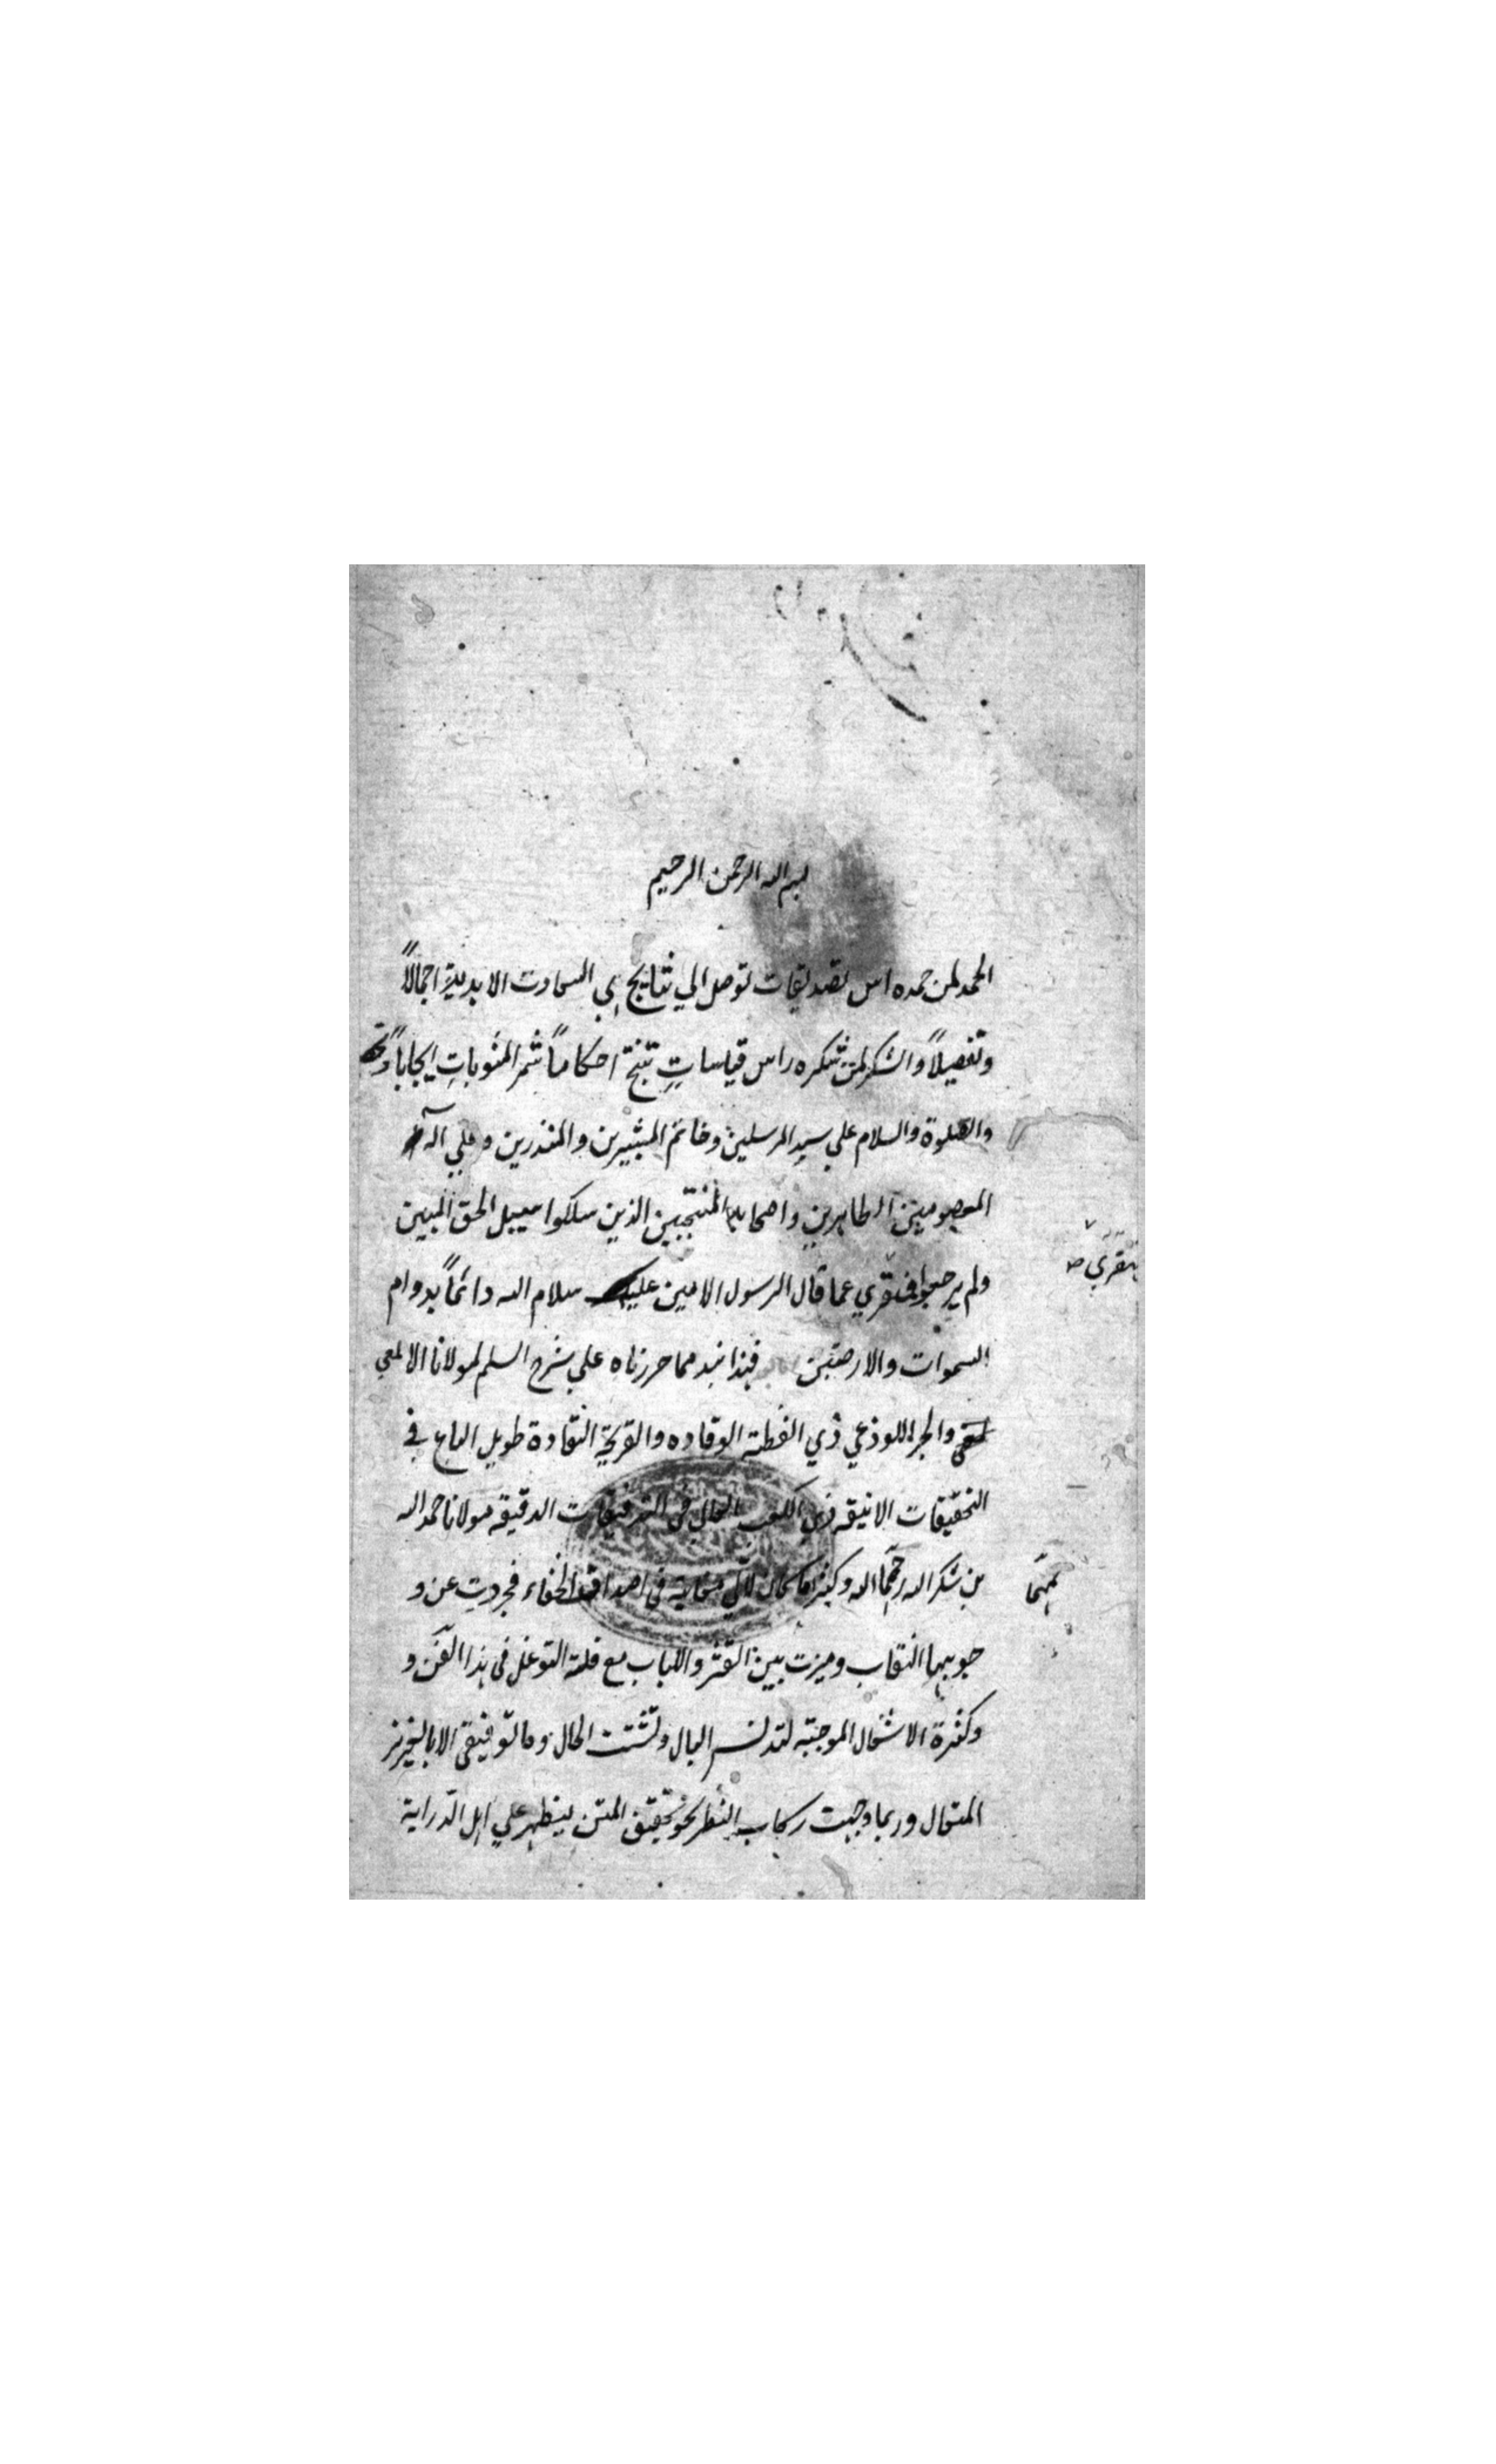 بسم الله الرحمن الرحيم
الحمد لمن حمده اس تصديقات توصل الي نتايج هي السعادت الابدية اجمالاً
وتفصيلاً والشكر لمن شكره راس قياساتٍ تنتج احكاماً تثمر المثوباتِ ايجاباً
والصلوة والسلام علي سيد المرسلين وخاتم المبشرين والمنذرين وعلي اله
المعصومين الطاهرين واصحابه المنتجبين الذين سلكوا سبيل الحق المبين
ولم يرجعوا قهقري عما قال الرسول الامين عليه سلام الله دائماً بدوام
السموات والارضين فهذا نبذ مما حررناه علي شرح السلم لمولانا الالمعي
والحبر اللوذعي ذي الفطنة الوقاده والقريحة النقادة طويل الباع في
التحقيقات الانيقه ذي الكعب العالي في التدقيقات الدقيقه مولانا حمد الله
بن شكر الله رحمهما الله وكثيرا ما كان لآلي معانيه في اصداف الخفاء فجردت عن و
جوهها النقاب وميزت بين القشر واللباب مع قلة التوغل في هذا الفن و
وكثرة الاشغال الموجبته البال وتشتت الحال وما توفيقي الا بالعزيز
المتعال وربما وجهت ركاب النظر نحو تحقيق المتن ليظهر علي اهل الدراية
قهقري صح